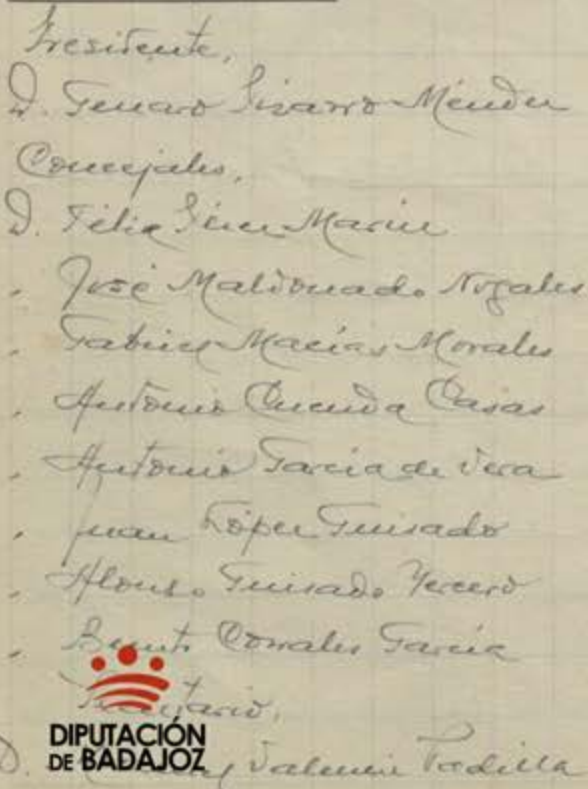 Presidente,
D. Genaro Pizarro Méndez
Concejales,
D. Félix Marín
" José Maldonado Nogales
" Gabriel Macías Morales
" Antonio Cuenda Casas
" Antonio García de Vera
" Juan López Guisado
" Alonso Guisado Yercero
" Benito Corrales García
DIPUTACIÓN
DE BADAJOZ
D. Valencia Padilla